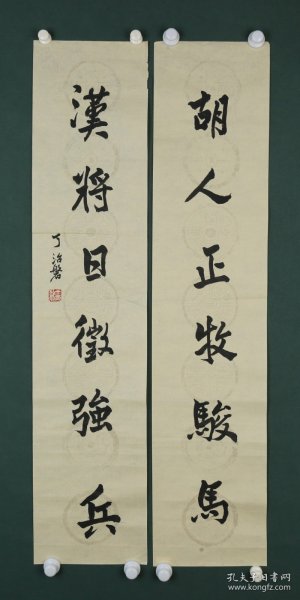 胡人正牧駿馬
漢將日徵強兵
丁治磐
孔夫子旧书网
www.kongfz.com